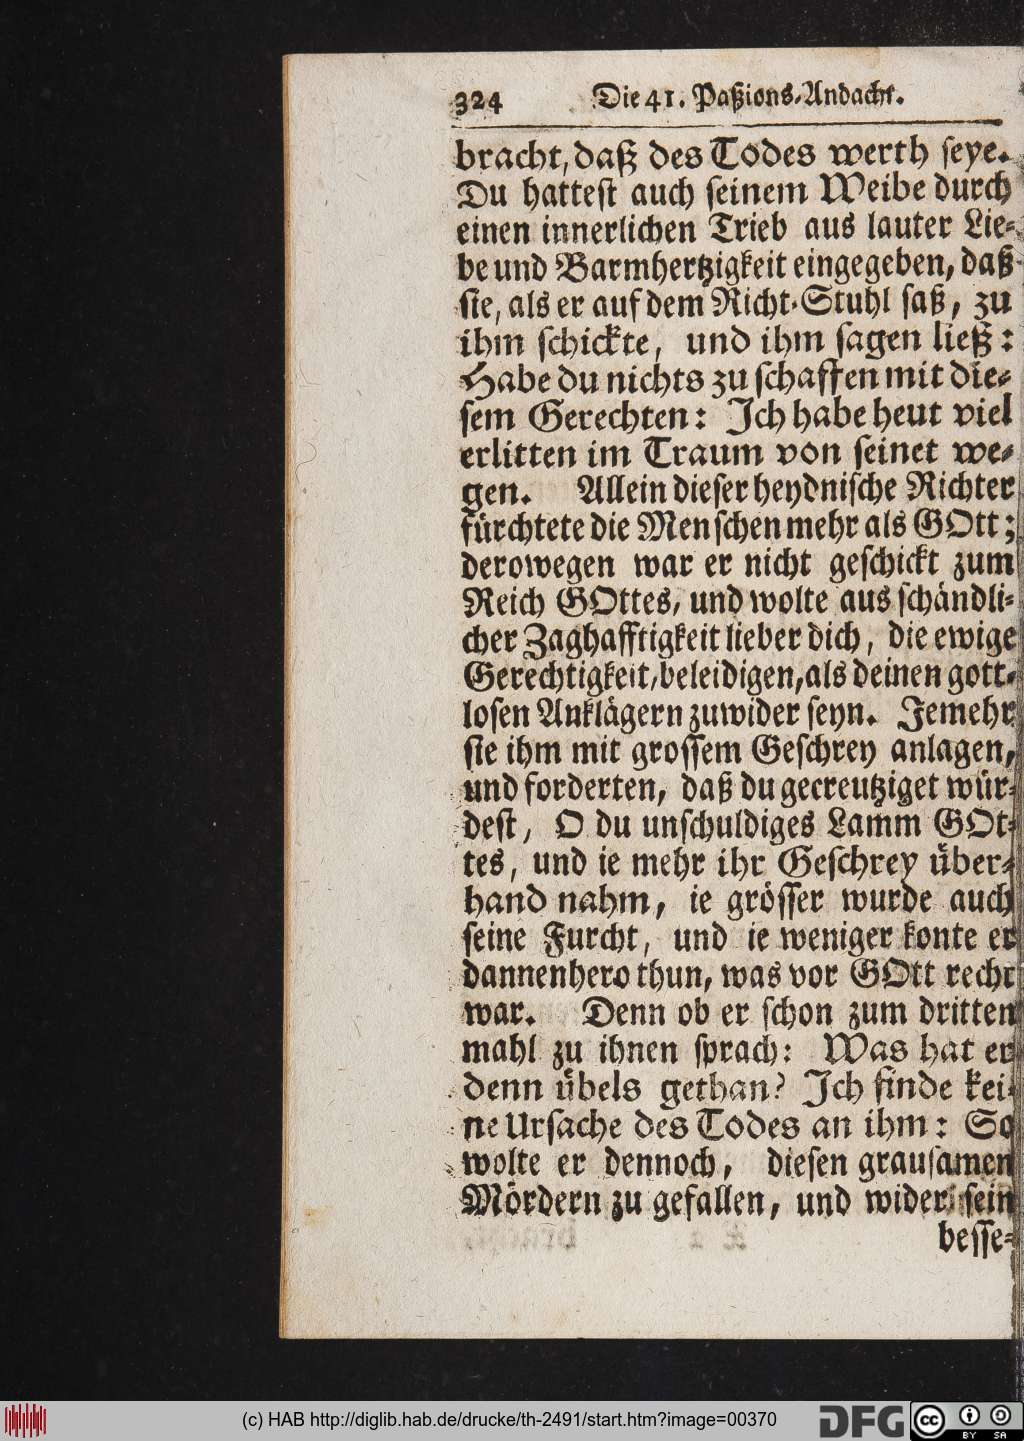 324 Die 41. Paßions-Andacht.
bracht, daß des Todes werth seye.
Du hattest auch seinem Weibe durch
einen innerlichen Trieb aus lauter Lie-
be und Barmhertzigkeit eingegeben, daß
sie, als er auf dem Richt-Stuhl saß, zu
ihm schickte, und ihm sagen ließ:
Habe du nichts zu schaffen mit die-
sem Gerechten: Ich habe heut viel
erlitten im Traum von seinet we-
gen. Allein dieser heydnische Richter
fürchtete die Menschen mehr als GOtt;
derowegen war er nicht geschickt zum
Reich GOttes, und wolte aus schändli-
cher Zaghafftigkeit lieber dich, die ewige
Gerechtigkeit, beleidigen, als deinen gott-
losen Anklägern zuwider seyn. Jemehr
sie ihm mit grossem Geschrey anlagen,
und forderten, daß du gecreutziget wür-
dest, O du unschuldiges Lamm GOt-
tes, und ie mehr ihr Geschrey über-
hand nahm, ie grösser wurde auch
seine Furcht, und ie weniger konte er
dannenhero thun, was vor GOtt recht
war. Denn ob er schon zum dritten
mahl zu ihnen sprach: Was hat er
denn übels gethan? Ich finde kei-
ne Ursache des Todes an ihm: So
wolte er dennoch, diesen grausamen
Mördern zu gefallen, und wider sein
besse-
(c) HAB http://diglib.hab.de/drucke/th-2491/start.htm?image=00370
DFG
cc BY SA